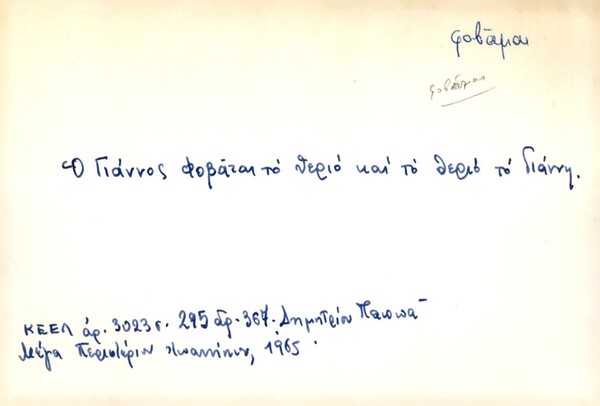 φοβᾶμαι
φοβᾶμαι
Ὁ Γιάννος φοβᾶται τὸ θεριό καί τό θεριό τό Γιάννη.
ΚΕΕΛ ἀρ. 3023 σ. 295 ἀρ. 367. Δημητρίου
Μέγα Περιστέριον Ἰωαννίνων, 1965